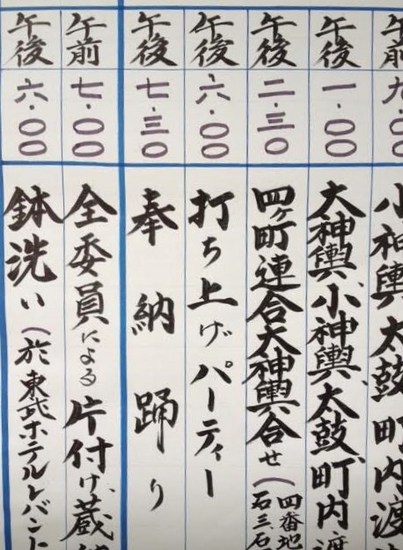 午前 九・〇〇 小神輿、太鼓町内渡
午後 一・〇〇 大神輿、小神輿、太鼓、町内渡
午後 二・三〇 四ヶ町連合大神輿合せ（四番地 石三、石
午後 六・〇〇 打ち上げパーティー
午後 七・三〇 奉納踊り
午前 七・〇〇 全委員による片付け、蔵納
午後 六・〇〇 鉢洗い（於東武ホテルレバント